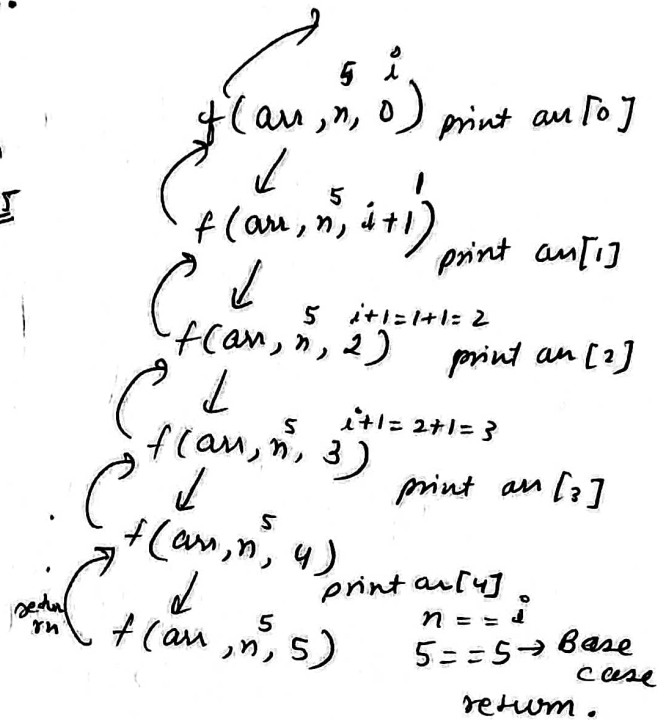 5 i
f(arr, n, 0) print arr[0]
5
5 1
f(arr, n, i+1)
print arr[1]
5 i+1=1+1=2
f(arr, n, 2) print arr[2]
5 i+1=2+1=3
f(arr, n, 3)
print arr[3]
5
f(arr, n, 4)
print arr[4]
n == i
5
f(arr, n, 5) 5==5→ Base case
retu
rn
return.